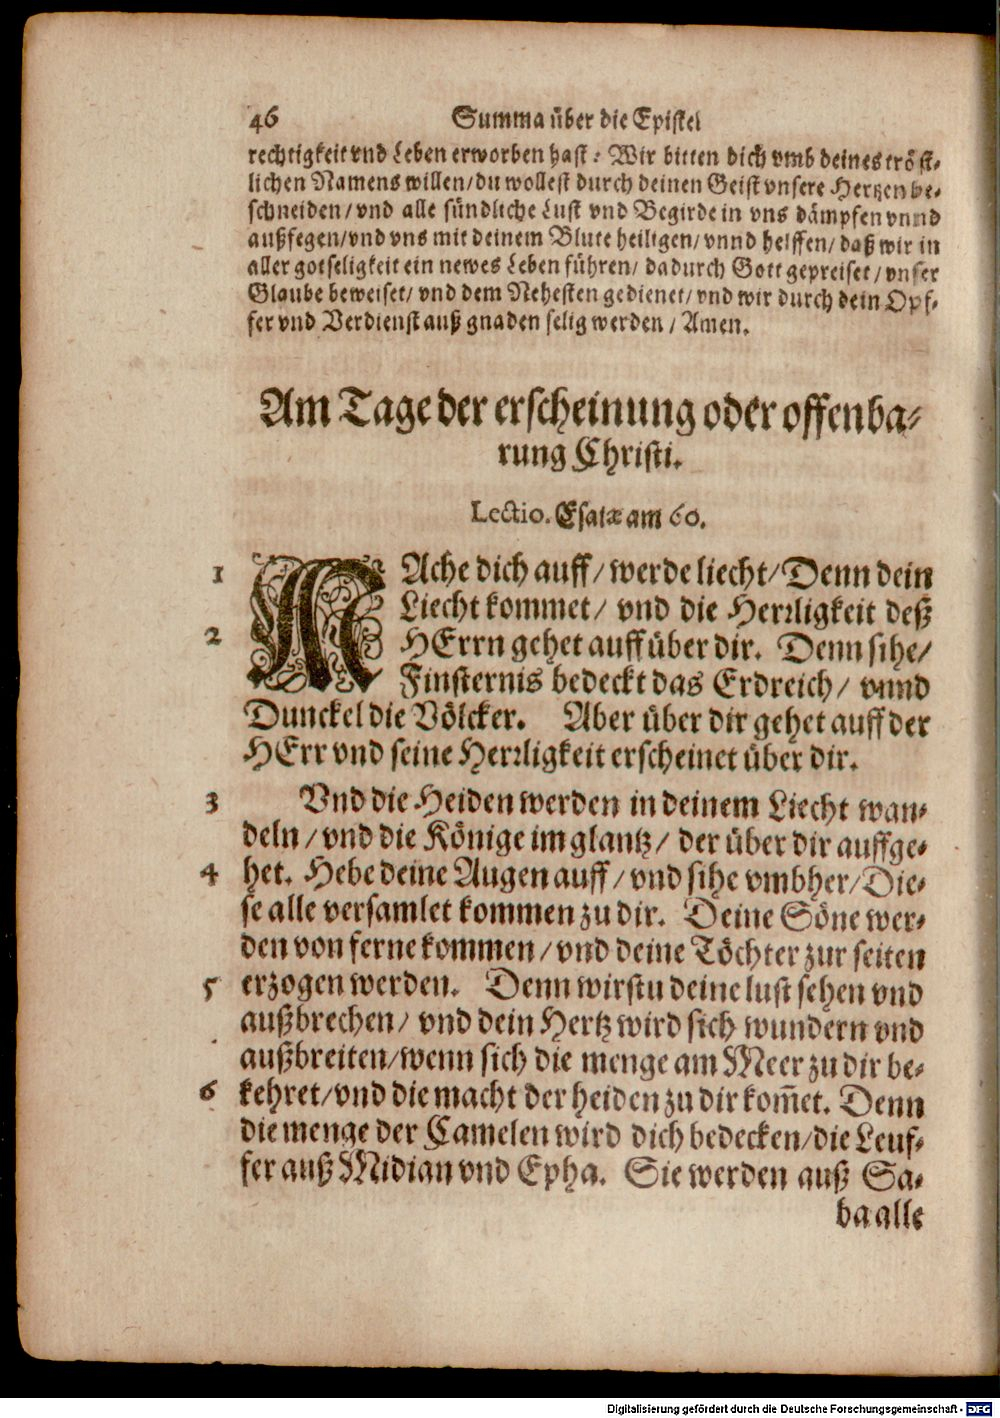 46 Summa über die Epistel
rechtigkeit vnd Leben erworben hast: Wir bitten dich vmb deines tröst-
lichen Namens willen/ du wollest durch deinen Geist vnsere Hertzen be-
schneiden/ vnd alle sündliche Lust vnd Begirde in vns dämpfen vnnd
außfegen/ vnd vns mit deinem Blute heiligen/ vnnd helffen/ daß wir in
aller gotseligkeit ein newes Leben führen/ dadurch Gott gepreiset/ vnser
Glaube beweiset/ vnd dem Nehesten gedienet/ vnd wir durch dein Opf-
fer vnd Verdienst auß gnaden selig werden/ Amen.
Am Tage der erscheinung oder offenba-
rung Christi.
Lectio. Esaiæ am 60.
1 MAche dich auff/ werde liecht/ Denn dein
Liecht kommet/ vnd die Herrligkeit deß
2 HErrn gehet auff über dir. Denn sihe/
Finsternis bedeckt das Erdreich/ vnnd
Dunckel die Völcker. Aber über dir gehet auff der
HErr vnd seine Herrligkeit erscheinet über dir.
3 Vnd die Heiden werden in deinem Liecht wan-
deln/ vnd die Könige im glantz/ der über dir auffge-
4 het. Hebe deine Augen auff/ vnd sihe vmbher/ Die-
se alle versamlet kommen zu dir. Deine Söne wer-
den von ferne kommen/ vnd deine Töchter zur seiten
5 erzogen werden. Denn wirstu deine lust sehen vnd
außbrechen/ vnd dein Hertz wird sich wundern vnd
außbreiten/ wenn sich die menge am Meer zu dir be-
6 kehret/ vnd die macht der heiden zu dir kom̃et. Denn
die menge der Camelen wird dich bedecken/ die Leuf-
fer auß Midian vnd Epha. Sie werden auß Sa-
ba alle
Digitalisierung gefördert durch die Deutsche Forschungsgemeinschaft - DFG